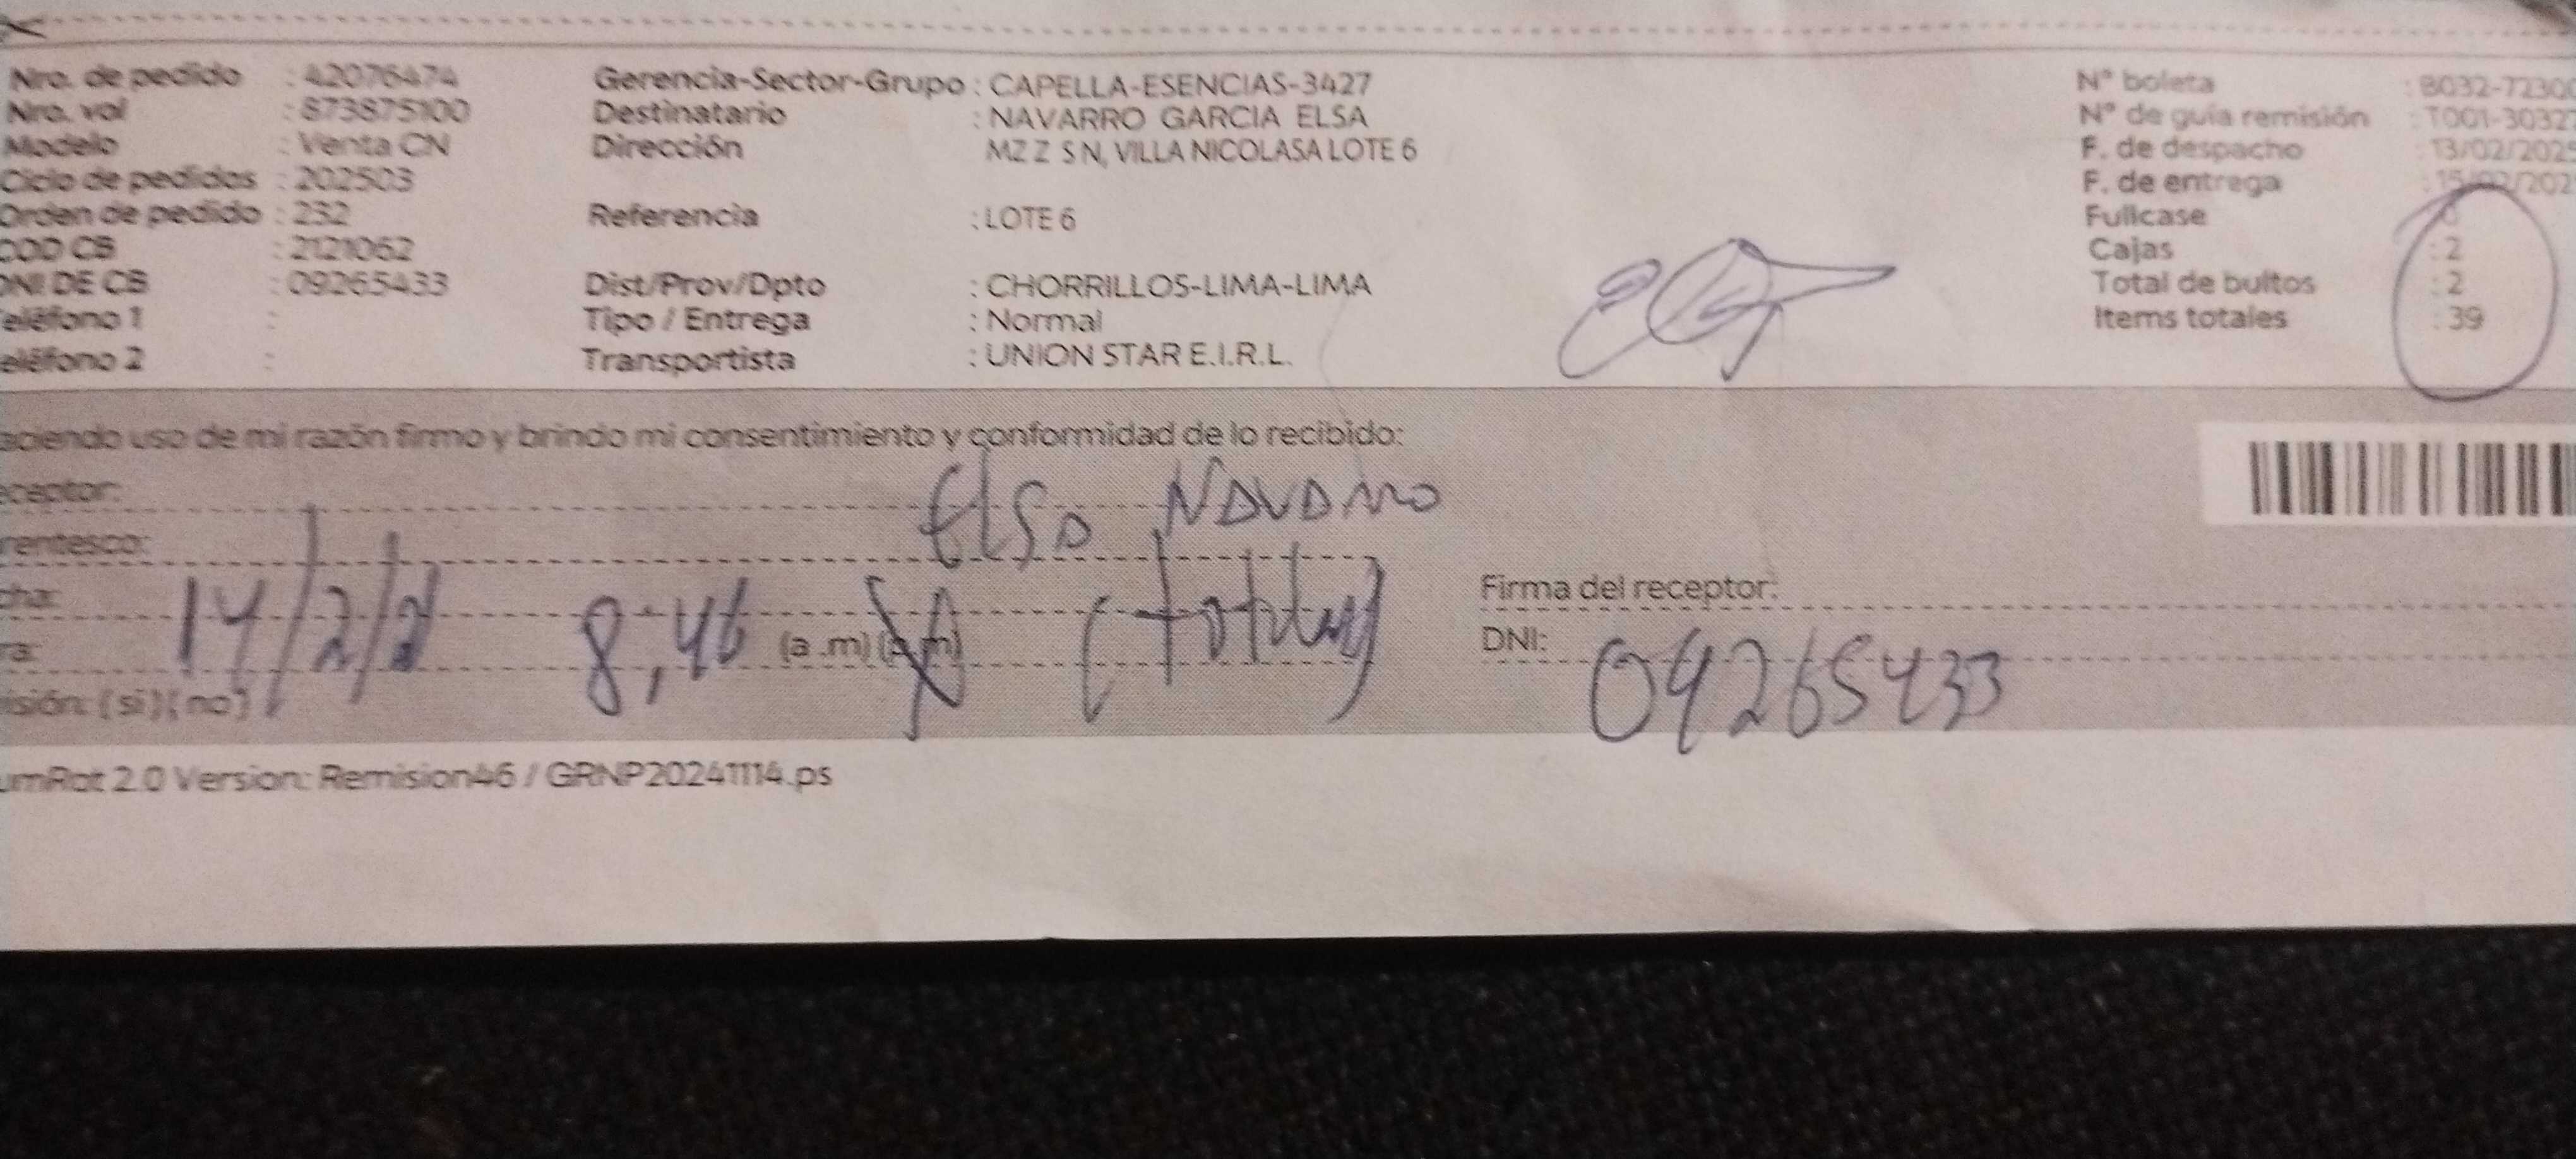 Nro. de pedido : 42076474 Gerencia-Sector-Grupo : CAPELLA-ESENCIAS-3427 N° boleta : B032-72300
Nro. vol : 873875100 Destinatario : NAVARRO GARCIA ELSA N° de guía remisión : T001-30327
Modelo : Venta CN Dirección MZ Z S N, VILLA NICOLASA LOTE 6 F. de despacho : 13/02/2025
Ciclo de pedidos : 202503 F. de entrega : 15/02/202
Orden de pedido : 232 Referencia : LOTE 6 Fullcase : 0
COD CB : 2121062 Cajas : 2
DNI DE CB : 09265433 Dist/Prov/Dpto : CHORRILLOS-LIMA-LIMA Total de bultos : 2
eléfono 1 : Tipo / Entrega : Normal Items totales : 39
eléfono 2 : Transportista : UNION STAR E.I.R.L.
aciendo uso de mi razón firmo y brindo mi consentimiento y conformidad de lo recibido:
eceptor: Elsa Navarro
rentesco:
cha: 14/2/2 Firma del receptor:
ra: 8,46 (a .m) (p.m) DNI: 09265433
isión: (si) (no)
umRot 2.0 Version: Remision46 / GRNP20241114.ps